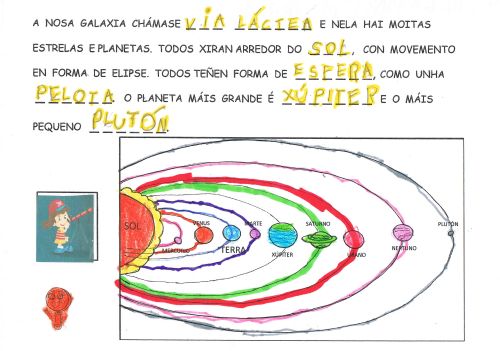 A NOSA GALAXIA CHÁMASE VÍA LÁCTEA E NELA HAI MOITAS
ESTRELAS E PLANETAS. TODOS XIRAN ARREDOR DO SOL, CON MOVEMENTO
EN FORMA DE ELIPSE. TODOS TEÑEN FORMA DE ESFERA, COMO UNHA
PELOTA. O PLANETA MÁIS GRANDE É XÚPITER E O MÁIS
PEQUENO PLUTÓN.
SOL
MERCURIO
VENUS
TERRA
MARTE
XUPITER
SATURNO
URANO
NEPTUNO
PLUTÓN